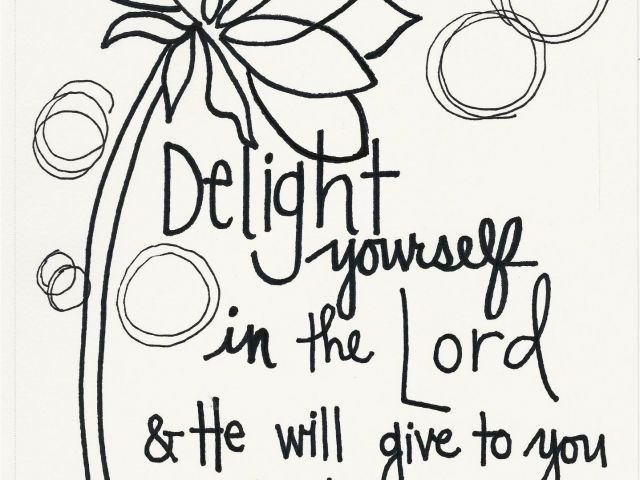 Delight
yourself
in the Lord
& He will give to you